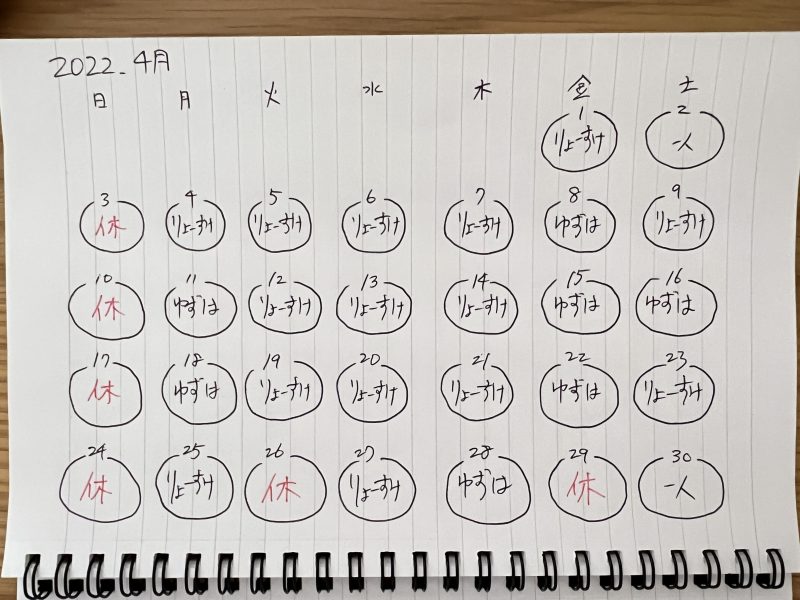 2022. 4月
日 月 火 水 木 金 土
1 2
りょーすけ 一人
3 4 5 6 7 8 9
休 りょーすけ りょーすけ りょーすけ りょーすけ ゆずは りょーすけ
10 11 12 13 14 15 16
休 ゆずは りょーすけ りょーすけ りょーすけ ゆずは ゆずは
17 18 19 20 21 22 23
休 ゆずは りょーすけ りょーすけ りょーすけ ゆずは りょーすけ
24 25 26 27 28 29 30
休 りょーすけ 休 りょーすけ ゆずは 休 一人